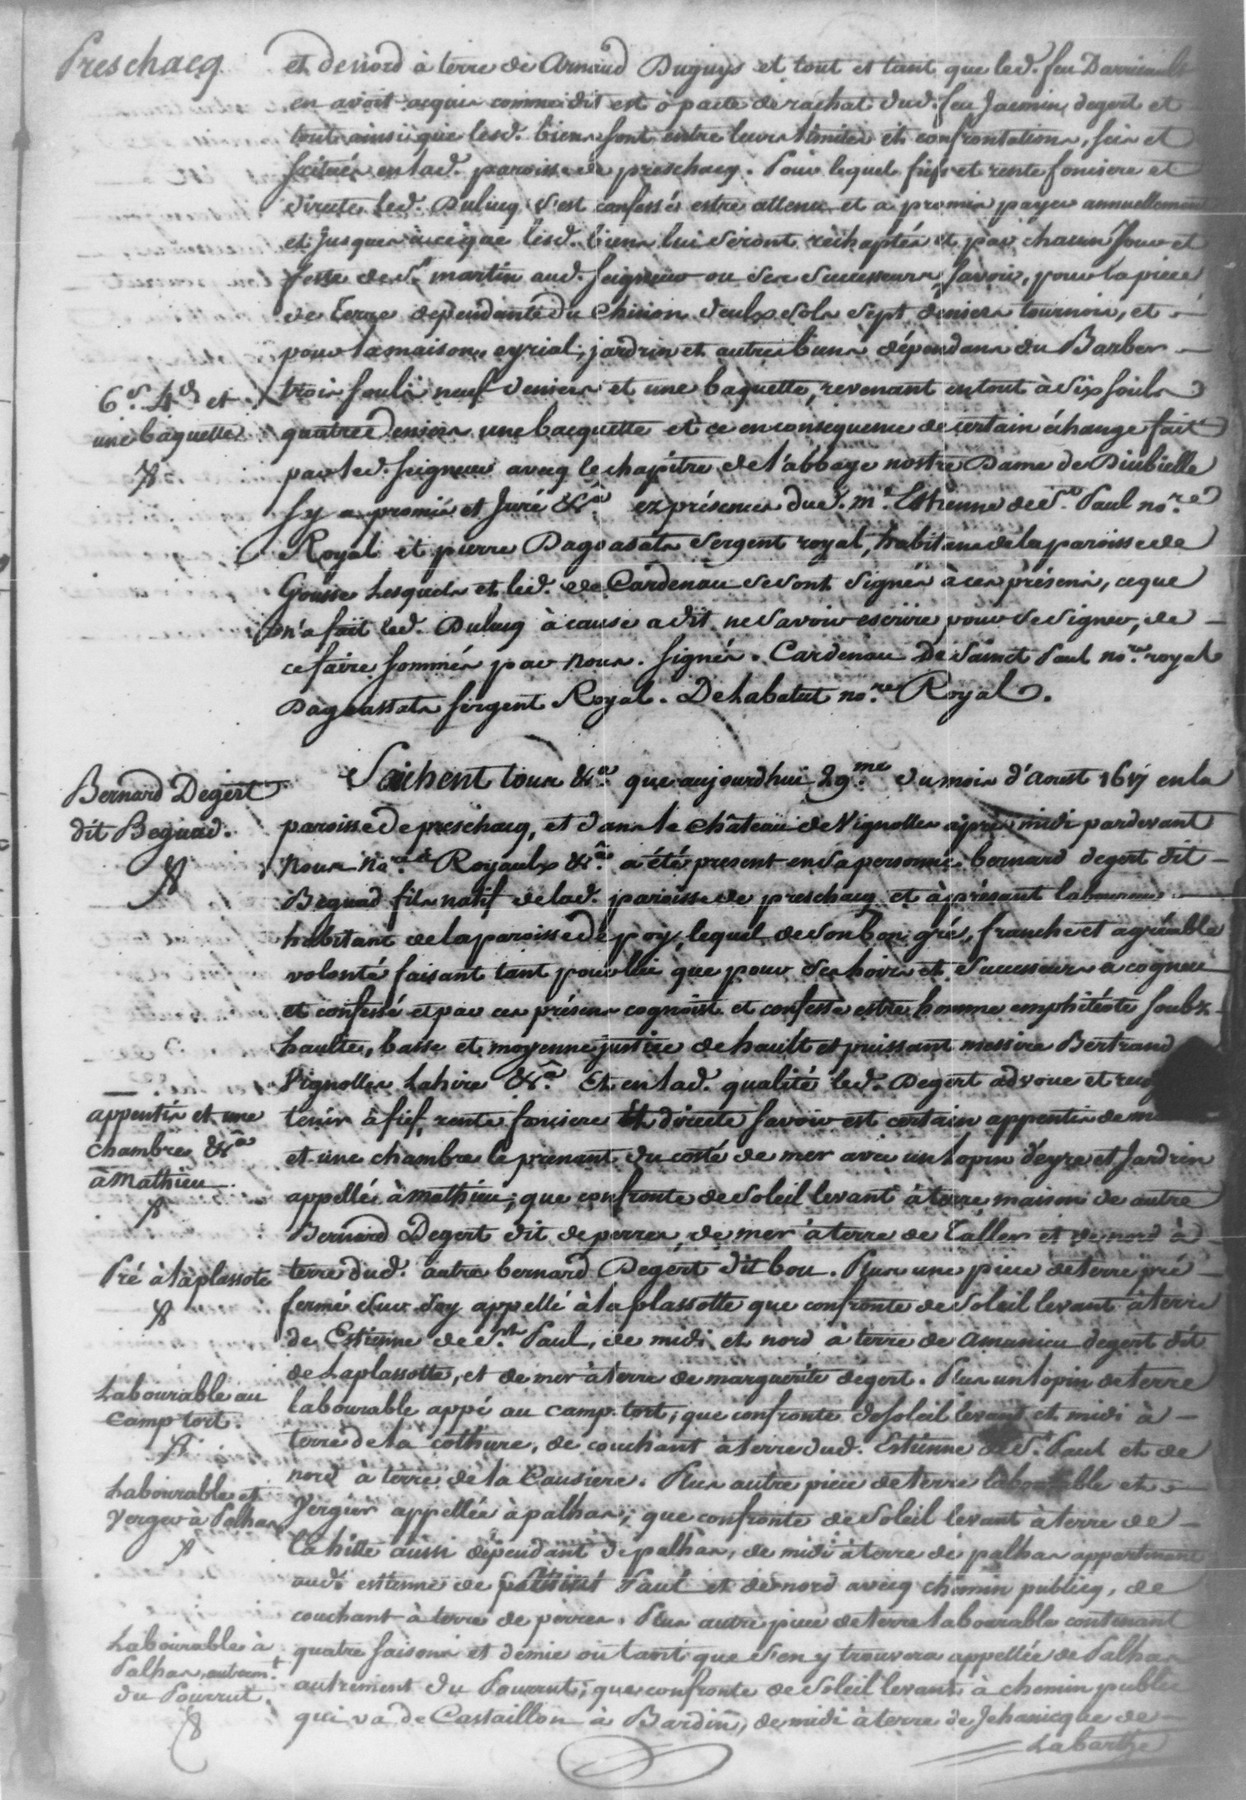 Preschacq
et de nord à terre de Arnaud Duguys et tout et tant que led. feu Darricault
en avoit acquis comme dit est à pacte de rachat dud. feu Jasmin degert et
tout ainsi que lesd. biens sont entre leurs limites et confrontations, sis et
scitués en lad. paroisse de preschacq. Pour lequel fief et rente fonciere et
directe led. Dulucq s'est confessé estre attenu et a promis payer annuellement
et Jusques à ce que lesd. biens lui seront rechaptés et par chacun Jour et
feste de St martin aud. seigneur ou ses successeurs, savoir, pour la piece
de terre dépendante du Chinon deulx sols sept deniers tournois, et
pour la maison, eyrial, jardrin et autres biens dépendans du Barber
6s. 4d et
une baquette
trois soulz neuf deniers et une baquette, revenant en tout à six souls
quatre deniers une bacquette et ce en consequence de certain échange fait
par led. seigneur avecq le chapitre de l'abbaye nostre Dame de Divielle
sy a promis et Juré &a. ez présences dud. me. Estienne de St. Paul nore
Royal et pierre Dagoassats sergent royal, habitans de la paroisse de
Gousse lesquels et led. de Cardenau se sont signés à ces présens, ce que
n'a fait led. Dulucq à cause a dit ne savoir escrire pour se signer, de
ce faire sommés par nous. signés. Cardenau De Sainct Paul nore. royal
Dagoassats sergent Royal. Delabatut nore. Royal.
Bernard Degert
dit Beguad.
Sachent tous &a que aujourdhui 29me du mois d'Aoust 1617 en la
paroisse de preschacq, et dans le château de Vignolles après midi pardevant
nous nores Royaulx &a a été present en sa personne bernard degert dit
Beguad fils natif de lad. paroisse de preschacq et à présent laboureur
habitant de la paroisse de poy, lequel de son bon gré, franche et agréable
volonté faisant tant pour lui que pour ses hoirs et successeurs a cogneu
et confessé et par ces présens cognoist et confesse estre homme emphitéote soubz
haulte, basse et moyenne justice de hault et puissant messire Bertrand
Vignolles Lahire &a. Et en lad. qualité led. Degert advoue et
appentis et une
chambre &a
à Mathieu
tenir à fief, rente fonciere Et directe savoir est certain appentis de
et une chambre le prenant du costé de mer avec un topin d'eyre et Jardrin
appellé à mathieu, que confronte de soleil levant à terre maison de autre
Bernard Degert dit de perres, de mer à terre de Taller et de nord à
Pré à la plassote
terre dud. autre bernard Degert dit bou. Plus une piece de terre pré
fermé sur soy appellé à la plassotte que confronte de soleil levant à terre
de Estienne de St. Paul, de midi et nord à terre de Amanieu degert dit
de Laplassotte, et de mer à terre de marguerite degert. Plus un topin de terre
Labourable au
Camp tort.
labourable appé au camp tort, que confronte de soleil levant et midi à
terre de la cothure, de couchant à terre dud. Estienne de St Paul et de
nord à terre de la Causiere. Plus autre piece de terre labourable et
Labourable et
Verger à Palhas
Vergier appellée à palhas; que confronte de soleil levant à terre de
Cahitte aussi dépendant de palhas, de midi à terre de palhas appartenant
aud. estienne de Paul et de nord avecq chemin publicq, de
couchant à terre de perres. Plus autre piece de terre labourable contenant
Labourable à
Palhas, autremt
du Pourrut.
quatre saisons et demie ou tant que s'en y trouvera appellée de Palhas
autrement du Pourrut; que confronte de soleil levant à chemin public
qui va de Castaillon à Bardin, de midi à terre de Jehanicque de
Labarthe